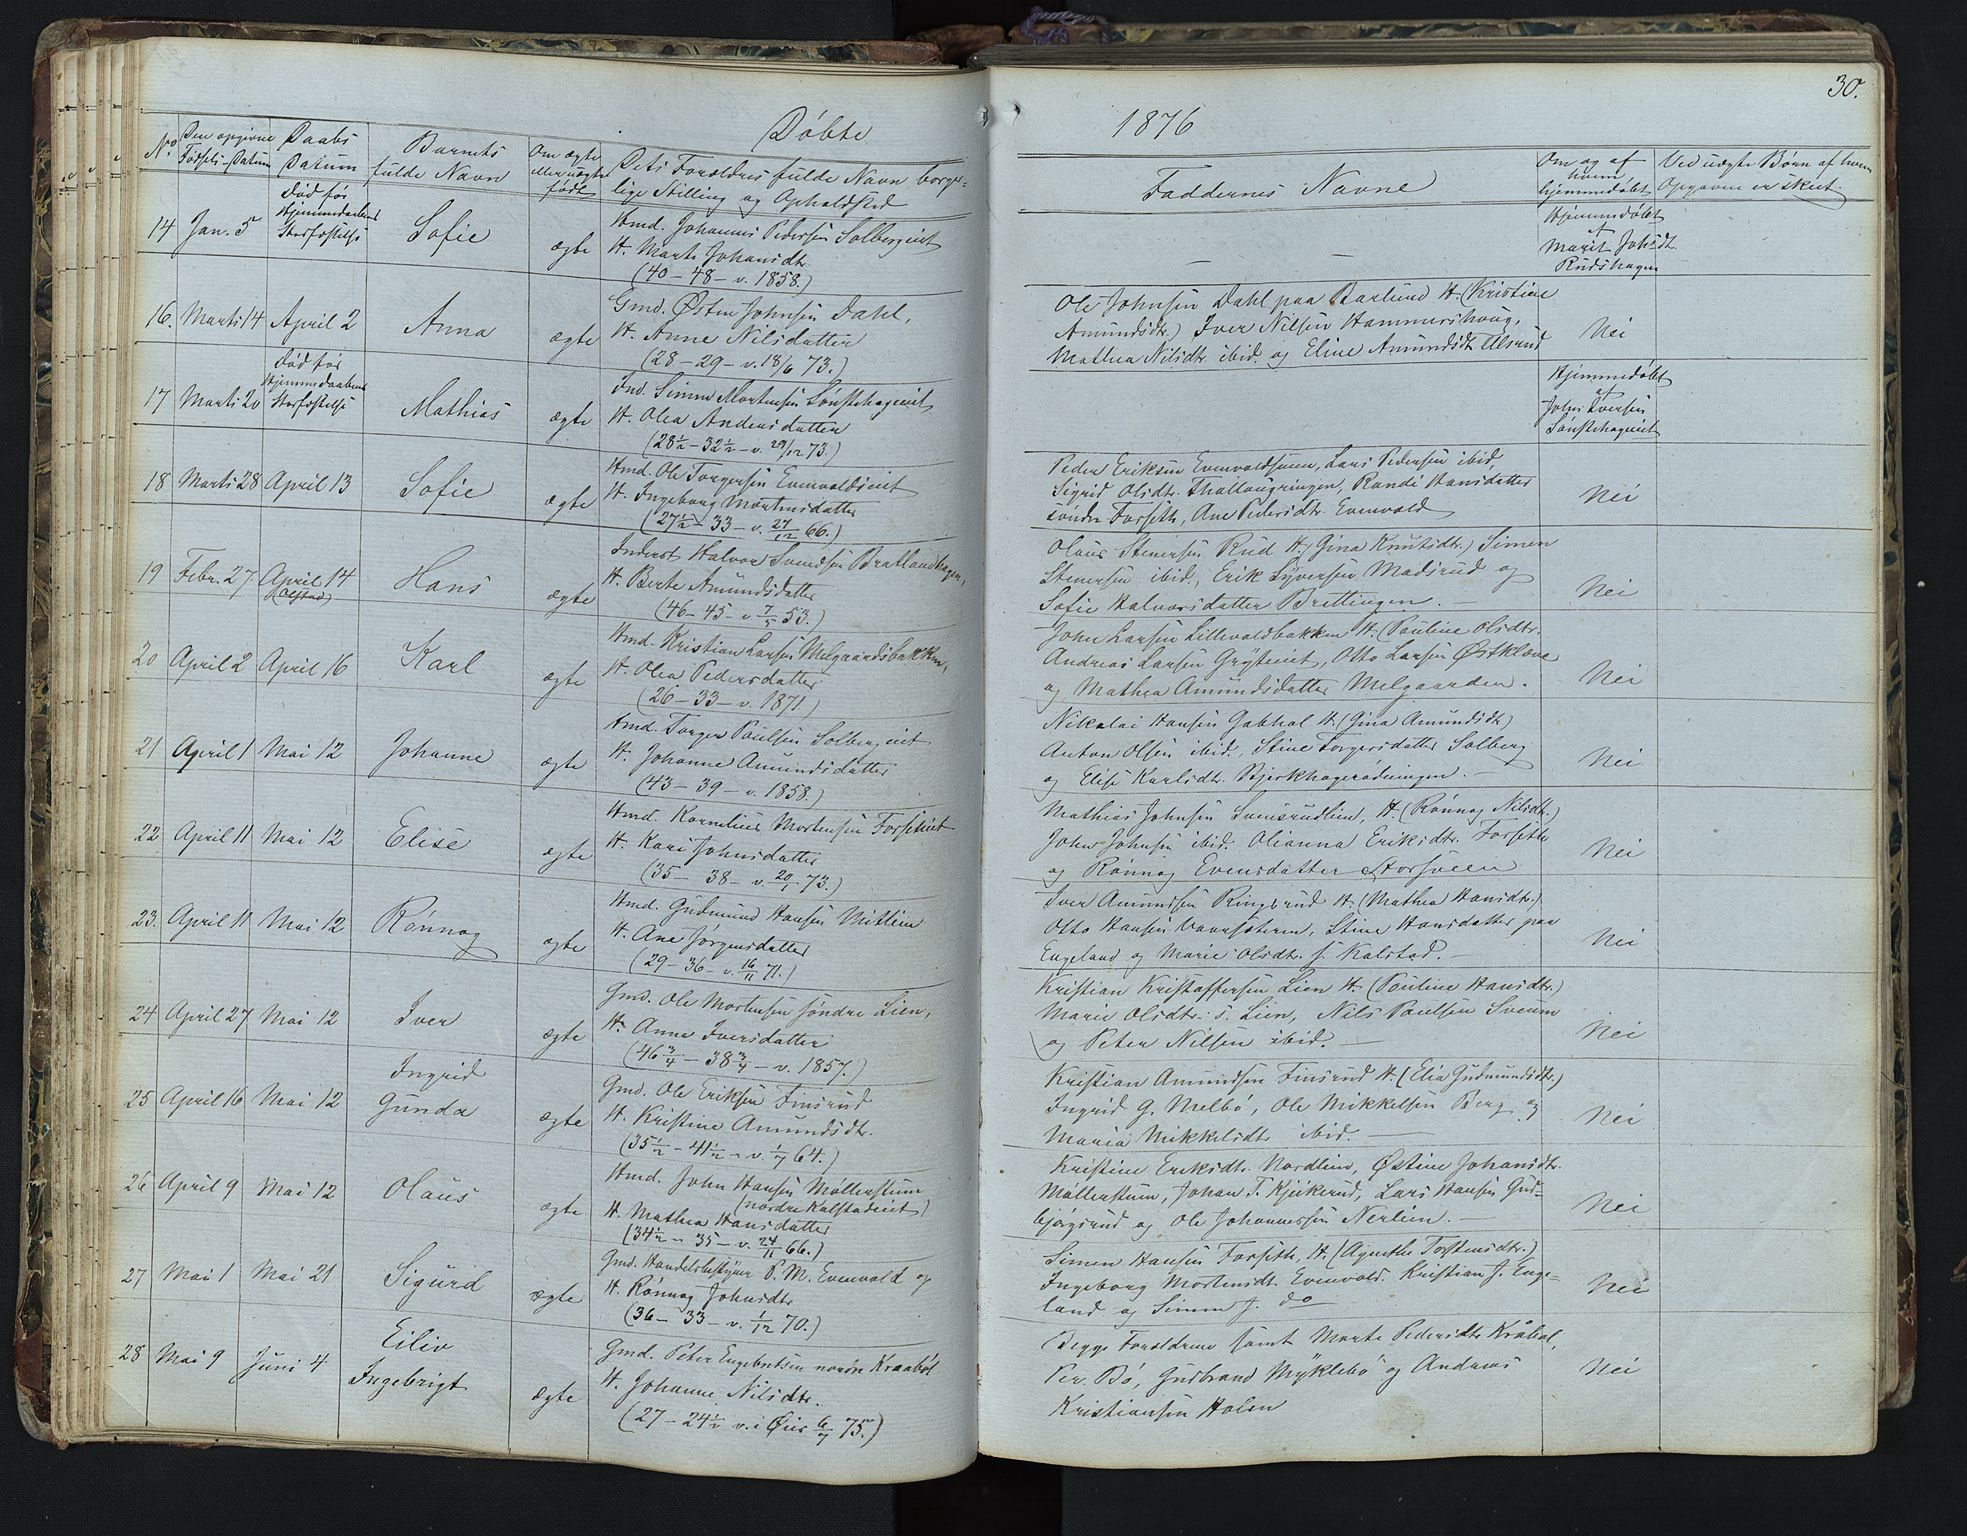 Døbte
1876
30.
No
Den opgivne Fødsels-Datum
Daabs Datum
Barnets fulde Navn
Om ægte eller uægte født
Dets Forældres fulde Navn borger-
lige Stilling og Opholdsted
Faddernes Navne
Om og af hvem hjemmedøbt
Ved uægte Børn af hvem Opgaven er skeet.
14 Jan. 5 død før Hjemmedaabens Stadfæstelse Sofie ægte
Hmd. Johannes Pedersen Solbergeiet
H. Marte Johansdtr.
(40 – 48 – v. 1858.)
Hjemmedøbt
af
Marit Johsdt.
Rudshagen
16. Marts 14 April 2 Anna ægte
Gmd. Østen Johnsen Dahl,
H. Anne Nilsdatter
(28 – 29 – v. 18/6 73.)
Ole Johnsen Dahl paa Barlund H. (Kristine
Amundsdtr.) Iver Nilsen Hammershoug,
Mathea Nilsdtr. ibid. og Eline Amundsdt. Ulsrud
Nei
17 Marts 20 død før Hjemmedaabens Stadfæstelse Mathias ægte
Ind. Simen Mortensen
H. Olea Andersdatter
(28½ – 32½ – v. 29/12 73.)
Hjemmedøbt
af
Johs Iversen
18 Marts 28 April 13 Sofie ægte
Hmd. Ole Torgersen Evenvoldseiet
H. Ingeborg Mortensdatter
(27½ – 33 – v. 27/12 66.)
Peder Eriksen Lars Pedersen ibid,
Sigrid Olsdtr. Randi Hansdatter
søndre Forseth, Ane Pedersdtr. Evenvold
Nei
19 Febr. 27 April 14 Hans ægte
Inderst Halvor Svendsen Bratlandhagen,
H. Berte Amundsdatter
(46 – 45 – v. 7/5 53.)
Olaus Stenersen Rud H. (Gina Knutsdtr.) Simen
Stenersen ibid., Erik Syversen Madsrud og
Sofie Halvorsdatter Brettingen. –
Nei
20 April 2 April 16 Karl ægte
Hmd. Kristian Larsen Melgaardsbakken,
H. Olea Pedersdatter
(26 – 33 – v. 1871.)
John Larsen Lillevoldbakken H. (Pauline Olsdtr.
Andreas Larsen Gryteiet, Otto Larsen Østkleve
og Mathea Amundsdatter Melgaarden.
Nei
21 April 1 Mai 12 Johanne ægte
Hmd. Torger Paulsen Solbergeiet
H. Johanne Amundsdatter
(43 – 39 – v. 1858.)
Nikolai Hansen Gabhol H. (Gina Amundsdt.)
Anton Olsen ibid., Stine Torgersdatter Solberg
og Elise Karlsdtr. Bjerkhagerødningen. –
Nei
22 April 11 Mai 12 Elise ægte
Hmd. Kornelius Mortensen Forsetheiet
H. Kari Johnsdatter
(35 – 38 – v. 20/1 73.)
Mathias Johnsen H. (Rønnog Nilsdtr.)
John Johnsen ibid. Olianna Eriksdtr. Forseth
og Rønnog Evensdatter Storsveen
Nei
23. April 11 Mai 12 Rønnog ægte
Hmd. Gudmund Hansen Mitlien
H. Ane Jørgensdatter
(29 – 36 – v. 16/11 71.)
Iver Amundsen Ringsrud H. (Mathea Hansdtr.)
Otto Hansen Stine Hansdatter paa
Engeland og Marie Olsdtr. s. Kalstad. –
Nei
24 April 27 Mai 12 Iver ægte
Gmd. Ole Mortensen søndre Lien,
H. Anne Iversdatter
(46¾ – 38¾ – v. 1857.)
Kristian Kristoffersen Lien H. (Pauline Hansdtr.)
Marie Olsdtr. s. Lien, Nils Paulsen Sveum
og Peter Nilsen ibid. –
Nei
25 April 16 Mai 12 Ingrid Gunda ægte
Gmd. Ole Eriksen Finsrud
H. Kristine Amundsdtr.
(35½ – 41½ – v. 1/7 64.)
Kristian Amundsen Finsrud H. (Elia Gudmundsdtr.)
Ingrid G. Melbø, Ole Mikkelsen Berg og
Maria Mikkelsdtr. ibid. –
Nei
26 April 9 Mai 12 Olaus ægte
Hmd. John Hansen Møllerstuen
(nordre Kalstadeiet)
H. Mathea Hansdatter
(34½ – 35 – v. 24/11 66.)
Kristine Eriksdtr. Nordlien, Østine Johansdtr.
Møllerstuen, Johan T. Kjeikerud, Lars Hansen Gud-
bjøgsrud og Ole Johannessen Nerlien. –
Nei
27 Mai 1 Mai 21 Sigurd ægte
Gmd. Handelsbestyrer P. M. Evenvold og
H. Rønnog Johnsdtr.
(36 – 33 – v. 1/12 70.)
Simen Hansen Forseth, H. (Agnethe Torstensdtr.)
Ingeborg Mortensdt. Evenvold. Kristian J. Enge-
land og Simen J. do
Nei
28 Mai 9 Juni 4 Eiliv Ingebrigt ægte
Gmd. Peter Engebretsen nordre Kraabøl
H. Johanne Nilsdtr.
(27 – 24½ v. i Øier 6/7 75.)
Begge Forældrene samt Marte Pedersdtr. Kråbøl,
Per Bø, Gudbrand Myklebø og Andreas
Kristiansen Holen
Nei